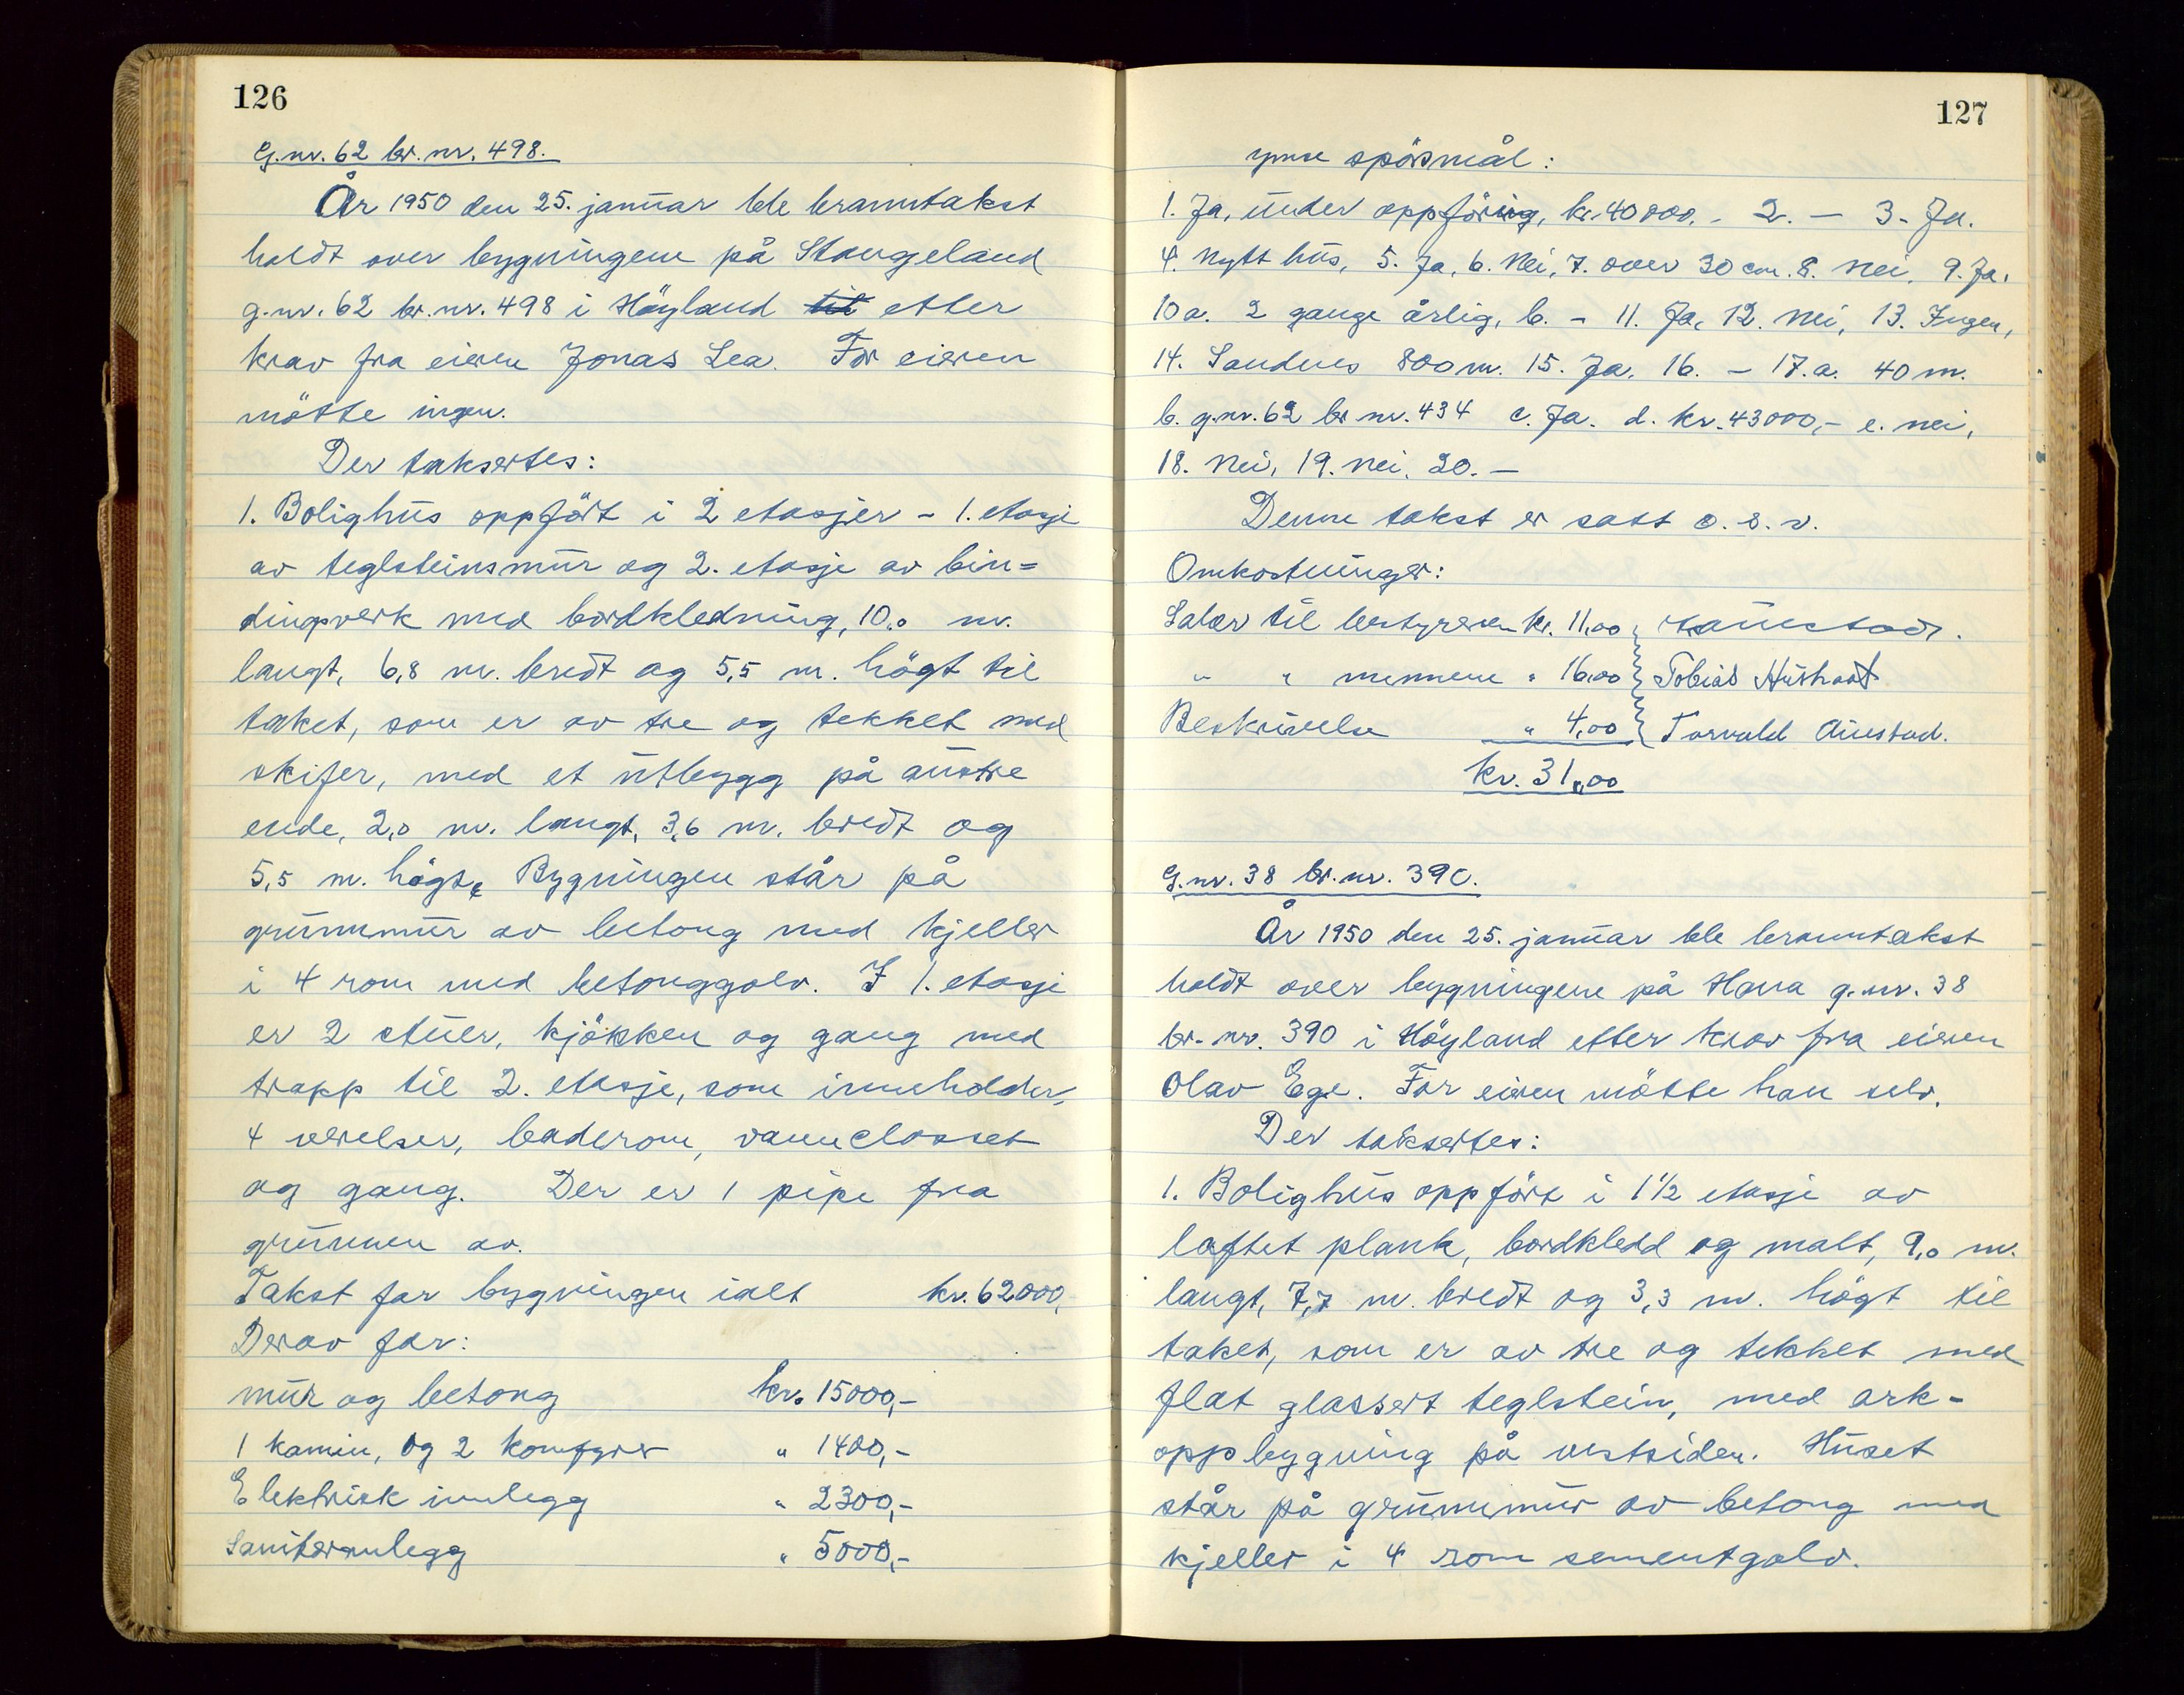 126
G.nr. 62 br. nr. 498.
År 1950 den 25. januar ble branntakst
holdt over bygningene på Stangeland
g.nr. 62 br. nr. 498 i Höyland til etter
krav fra eieren Jonas Lea. For eieren
mötte ingen.
Der taksertes:
1. Bolighus oppfört i 2 etasjer - 1. etasje
av teglsteinsmur og 2. etasje av bin=
dingsverk med bordkledning, 10,0 m.
langt, 6,8 m. bredt og 5,5 m. högt til
taket, som er av tre og tekket med
skifer, med et utbygg på austre
ende, 2,0 m. langt, 3,6 m. bredt og
5,5 m. högt. Bygningen står på
grunnmur av betong med kjeller
i 4 rom med betonggolv. I 1. etasje
er 2 stuer, kjökken og gang med
trapp til 2. etasje, som inneholder,
4 værelser, baderom, vannclosset
og gang. Der er 1 pipe fra
grunnen av.
Takst for bygningen ialt kr. 62000,
Derav for:
mur og betong kr. 15000,-
1 kamin, og 2 komfyrer " 1400,-
Elektrisk innlegg " 2300,-
Saniteranlegg " 5000,-
127
ymse spörsmål:
1. Ja, under oppföring, kr. 40000. - 2. - 3. Ja.
4. Nytt hus, 5. Ja, 6. Nei, 7. over 30 cm. 8. Nei, 9. Ja.
10a. 2 gange årlig, b. - 11. Ja, 12. Nei, 13. Ingen,
14. Sandnes 800 m. 15. Ja, 16. - 17.a. 40 m.
b. g.nr. 62 br nr. 434 c. Ja. d. kr. 43000,- e. nei,
18. Nei, 19. Nei, 20. -
Denne takst er satt o. s. v.
Omkostninger:
Salær til bestyreren kr. 11,00
" " mennene " 16,00 Tobias
Beskrivelse " 4,00 Torvald Austad.
kr. 31,00
G.nr. 38 br. nr. 390.
År 1950 den 25. januar ble branntakst
holdt over bygningene på Hana g.nr. 38
br. nr. 390 i Höyland etter krav fra eieren
Olav Ege. For eieren mötte han selv.
Der taksertes:
1. Bolighus oppfört i 1½ etasje av
laftet plank, bordkledd og malt, 9,0 m.
langt, 7,7 m. bredt og 3,3 m. högt til
taket, som er av tre og tekket med
flat glassert teglstein, med ark-
oppbygning på vestsiden. Huset
står på grunnmur av betong med
kjeller i 4 rom sementgolv.